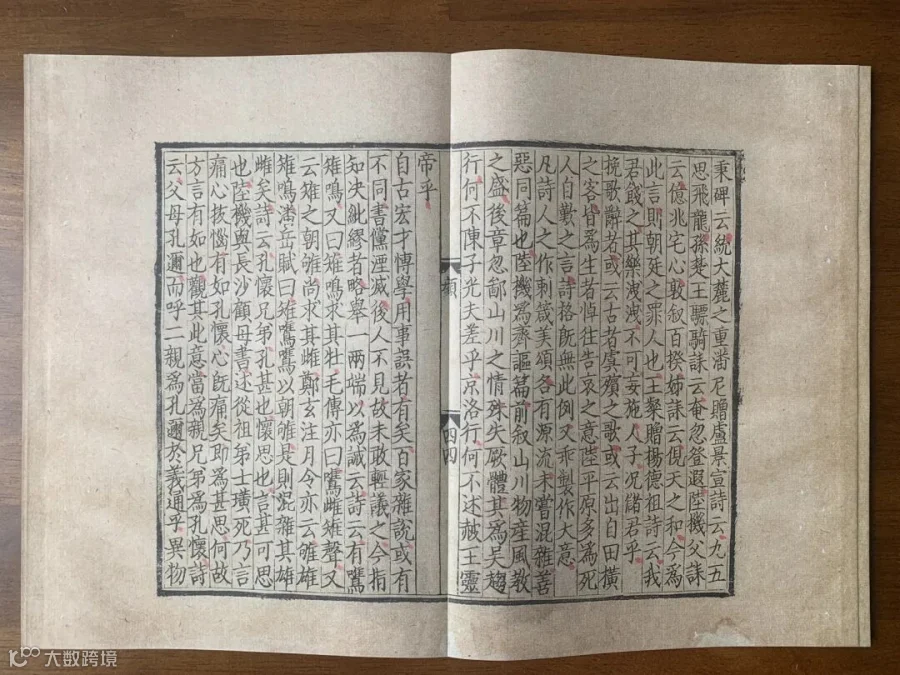 秉碑云統大麓之重潘尼贈盧景宣詩云九五
思飛龍孫楚王驃騎誄云奄忽登遐陸機父誄
云億兆宅心敦叙百揆姊誄云俔天之和今爲
此言則朝廷之罪人也王粲贈楊德祖詩云我
君餞之其樂洩洩不可妄施人子況儲君乎
挽歌辭者或云古者虞殯之歌或云出自田橫
之客皆爲生者悼往告哀之意陸平原多爲死
人自歎之言詩格既無此例又乖製作大意
凡詩人之作刺箴美頌各有源流未嘗混雜善
惡同篇也陸機爲齊謳篇前叙山川物産風教
之盛後章忽鄙山川之情殊失厥體其爲吳趨
行何不陳子光夫差乎京洛行何不述赧王靈
四四
帝乎
自古宏才博學用事誤者有矣百家雜說或有
不同書儻湮滅後人不見故未敢輕議之今指
知决紕繆者略舉一兩端以爲誡云詩云有鷕
雉鳴又曰雉鳴求其牡毛傳亦曰鷕雌雉聲又
云雉之朝雊尚求其雌鄭玄注月令亦云雊雄
雉鳴潘岳賦曰雉鷕鷕以朝雊是則混雜其雄
雌矣詩云孔懷兄弟孔甚也懷思也言甚可思
也陸機與長沙顧母書述從祖弟士璜死乃言
痛心拔惱有如孔懷心既痛矣即爲甚思何故
方言有如也觀其此意當爲親兄弟爲孔懷詩
云父母孔邇而呼二親爲孔邇於義通乎異物
大数跨境